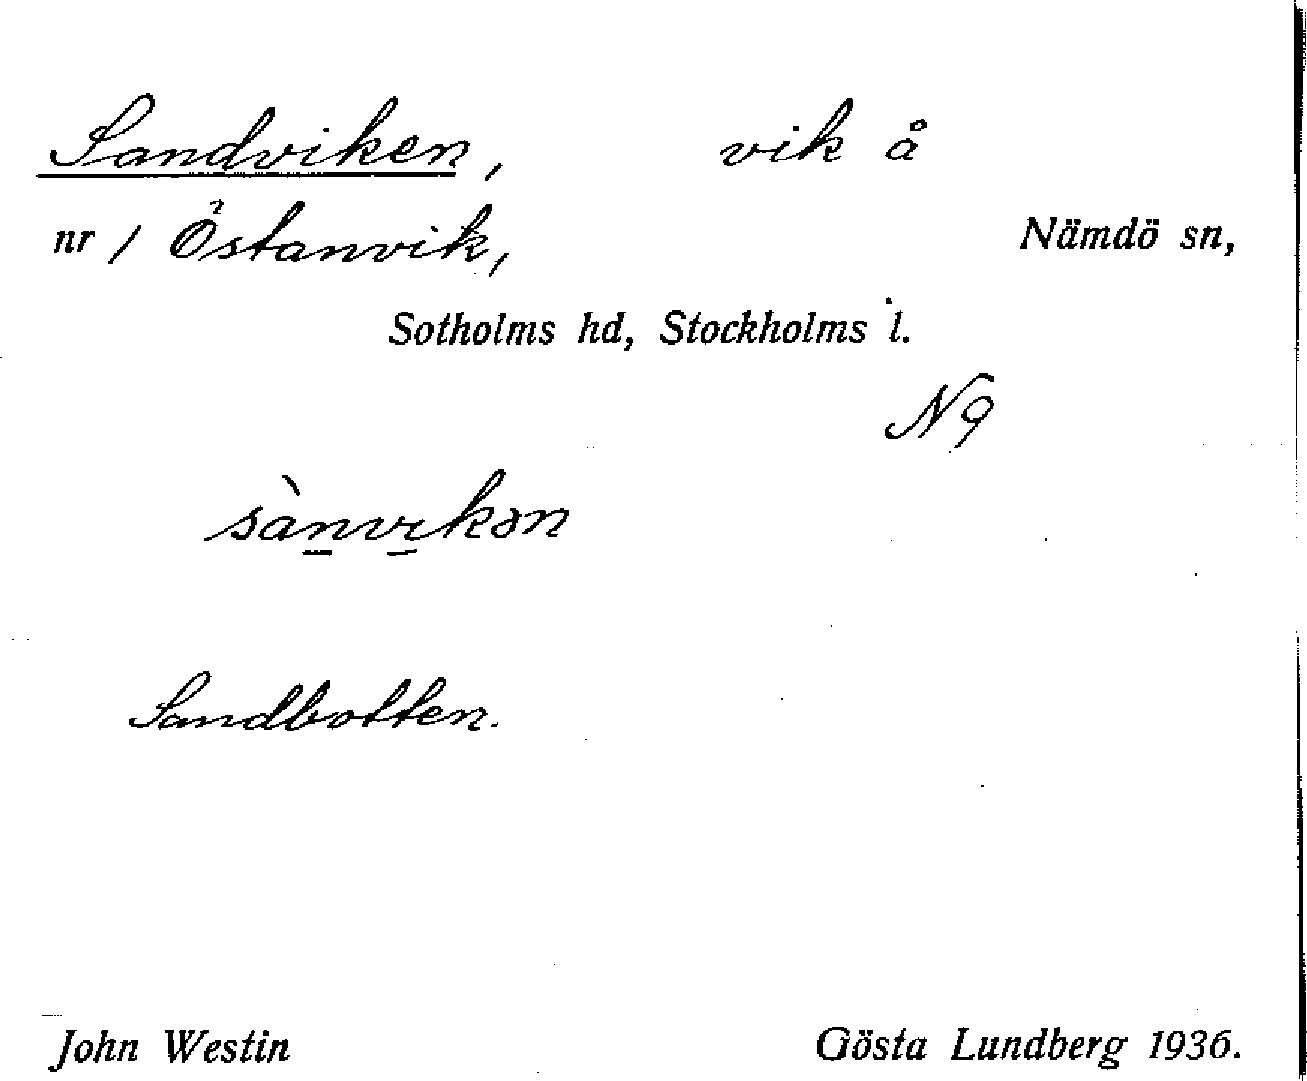 Sandviken, vik å
nr 1 Östanvik, Nämdö sn,
Sotholms hd, Stockholms l.
N9
sànvıkən
Sandbotten.
John Westin Gösta Lundberg 1936.